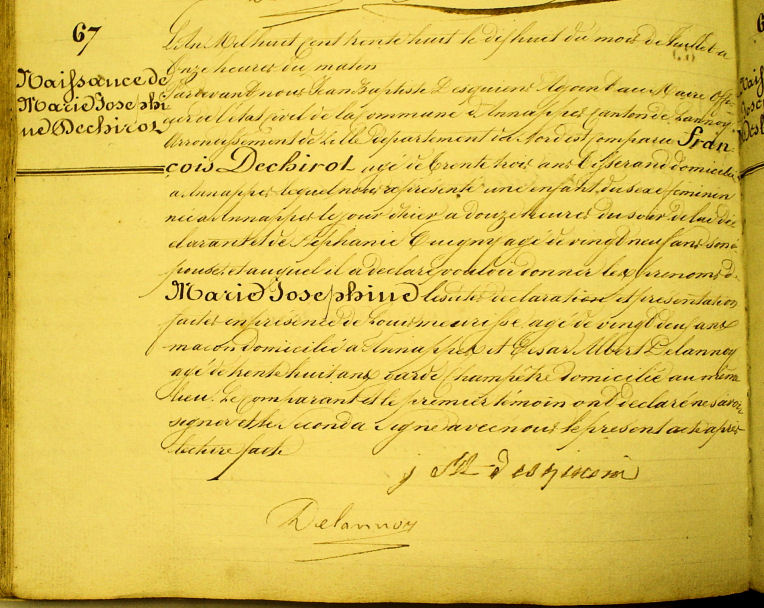 67
Naissance de
Marie Josephi
ne Dechirot
L'An Mil huit cent trente huit le dishuit du mois de Juillet a
Onze heures du matin
Pardevant nous Jean Baptiste Desquiens Adjoint au Maire Offi
cier de l'état civil de la Commune d'Annappes Canton de Lannoy
Arrondissement de Lille département du Nord est Comparu Fran
cois Dechirot agé de trente trois ans tisserand domicilié
a Annappes lequel nous a présenté une enfant du sexe feminin
née a Annappes le jour d'hier a douze heures du soir de lui dé
clarant et de Stéphanie Cuigny agé de vingt neuf ans son é
pouse et auquel il a déclaré vouloir donner les prenoms de
Marie Josephine lesdites declaration et presentation
faites en présence de Louis meurisse agé de vingt neuf ans
macon domicilié a Annappes et César Albert Delannoy
agé de trente huit ans Garde Champêtre domicilié au même
lieu. Le comparant et le premier témoin ont déclaré ne savoir
signer et le second a signé avec nous le présent acte après
lecture faite
Delannoy